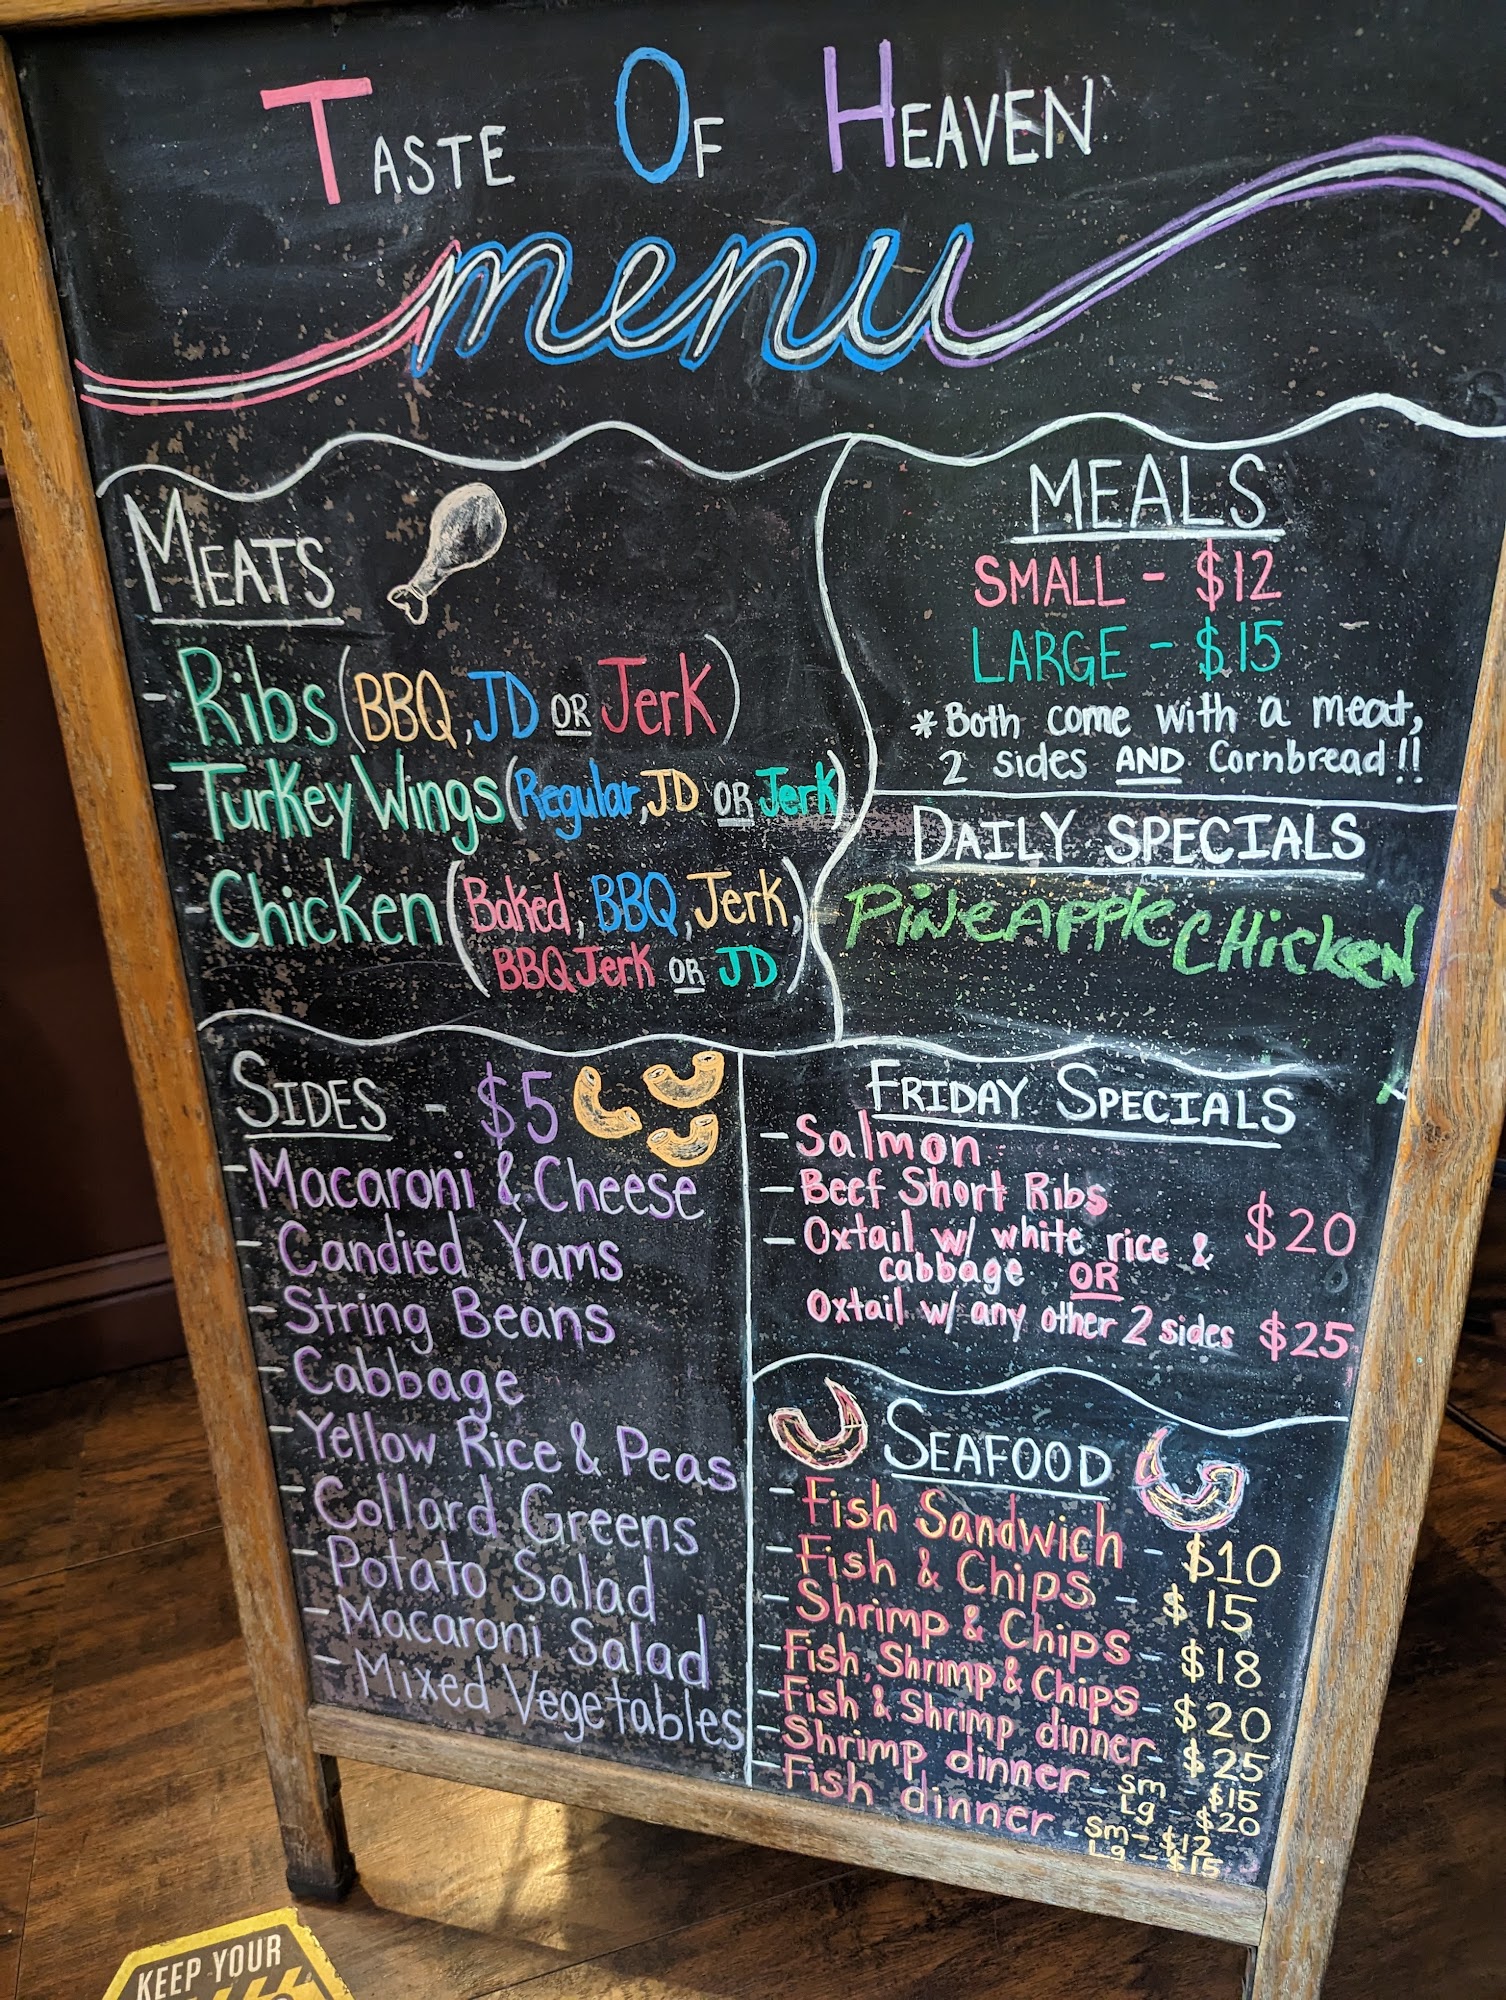 TASTE OF HEAVEN
menu
MEATS
- Ribs (BBQ, JD OR Jerk)
- Turkey Wings (Regular, JD OR Jerk)
- Chicken (Baked, BBQ, Jerk,
BBQ Jerk OR JD)
MEALS
SMALL - $12
LARGE - $15
* Both come with a meat,
2 sides AND Cornbread!!
DAILY SPECIALS
PiNeApple CHickeN
SIDES - $5
- Macaroni & Cheese
- Candied Yams
- String Beans
- Cabbage
- Yellow Rice & Peas
- Collard Greens
- Potato Salad
- Macaroni Salad
- Mixed Vegetables
FRIDAY SPECIALS
- Salmon
- Beef Short Ribs
- Oxtail w/ white rice & $20
cabbage OR
Oxtail w/ any other 2 sides $25
SEAFOOD
- Fish Sandwich - $10
- Fish & Chips - $15
- Shrimp & Chips - $18
- Fish, Shrimp & Chips - $20
- Fish & Shrimp dinner - $25
- Shrimp dinner - Sm - $15
Lg - $20
- Fish dinner - Sm - $12
Lg - $15
KEEP YOUR